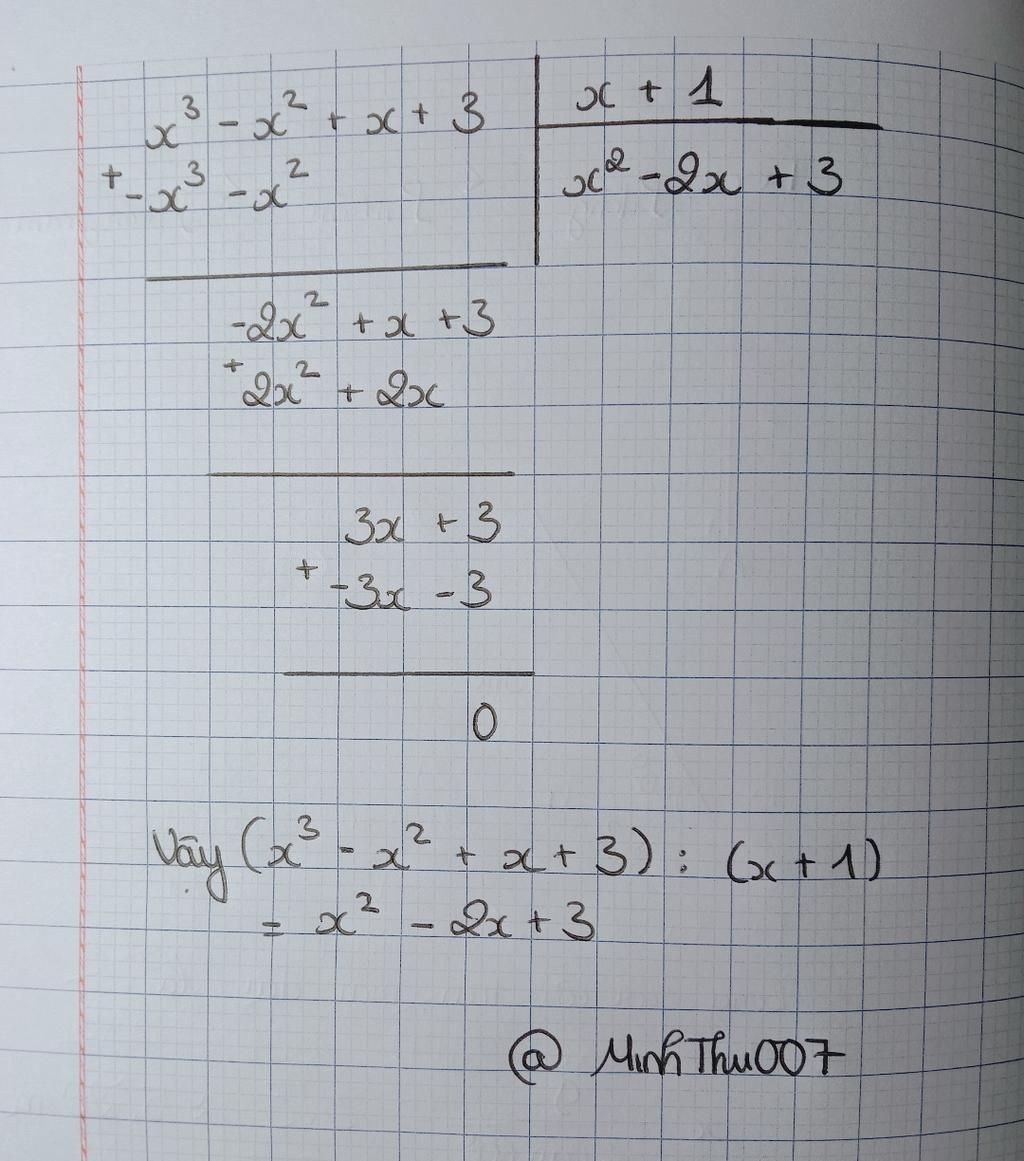 x³ - x² + x + 3 | x + 1
+ -x³ - x² | x² - 2x + 3
-2x² + x + 3
+ 2x² + 2x
3x + 3
+ -3x - 3
0
Vậy (x³ - x² + x + 3) : (x + 1)
= x² - 2x + 3
@ MinhThu007